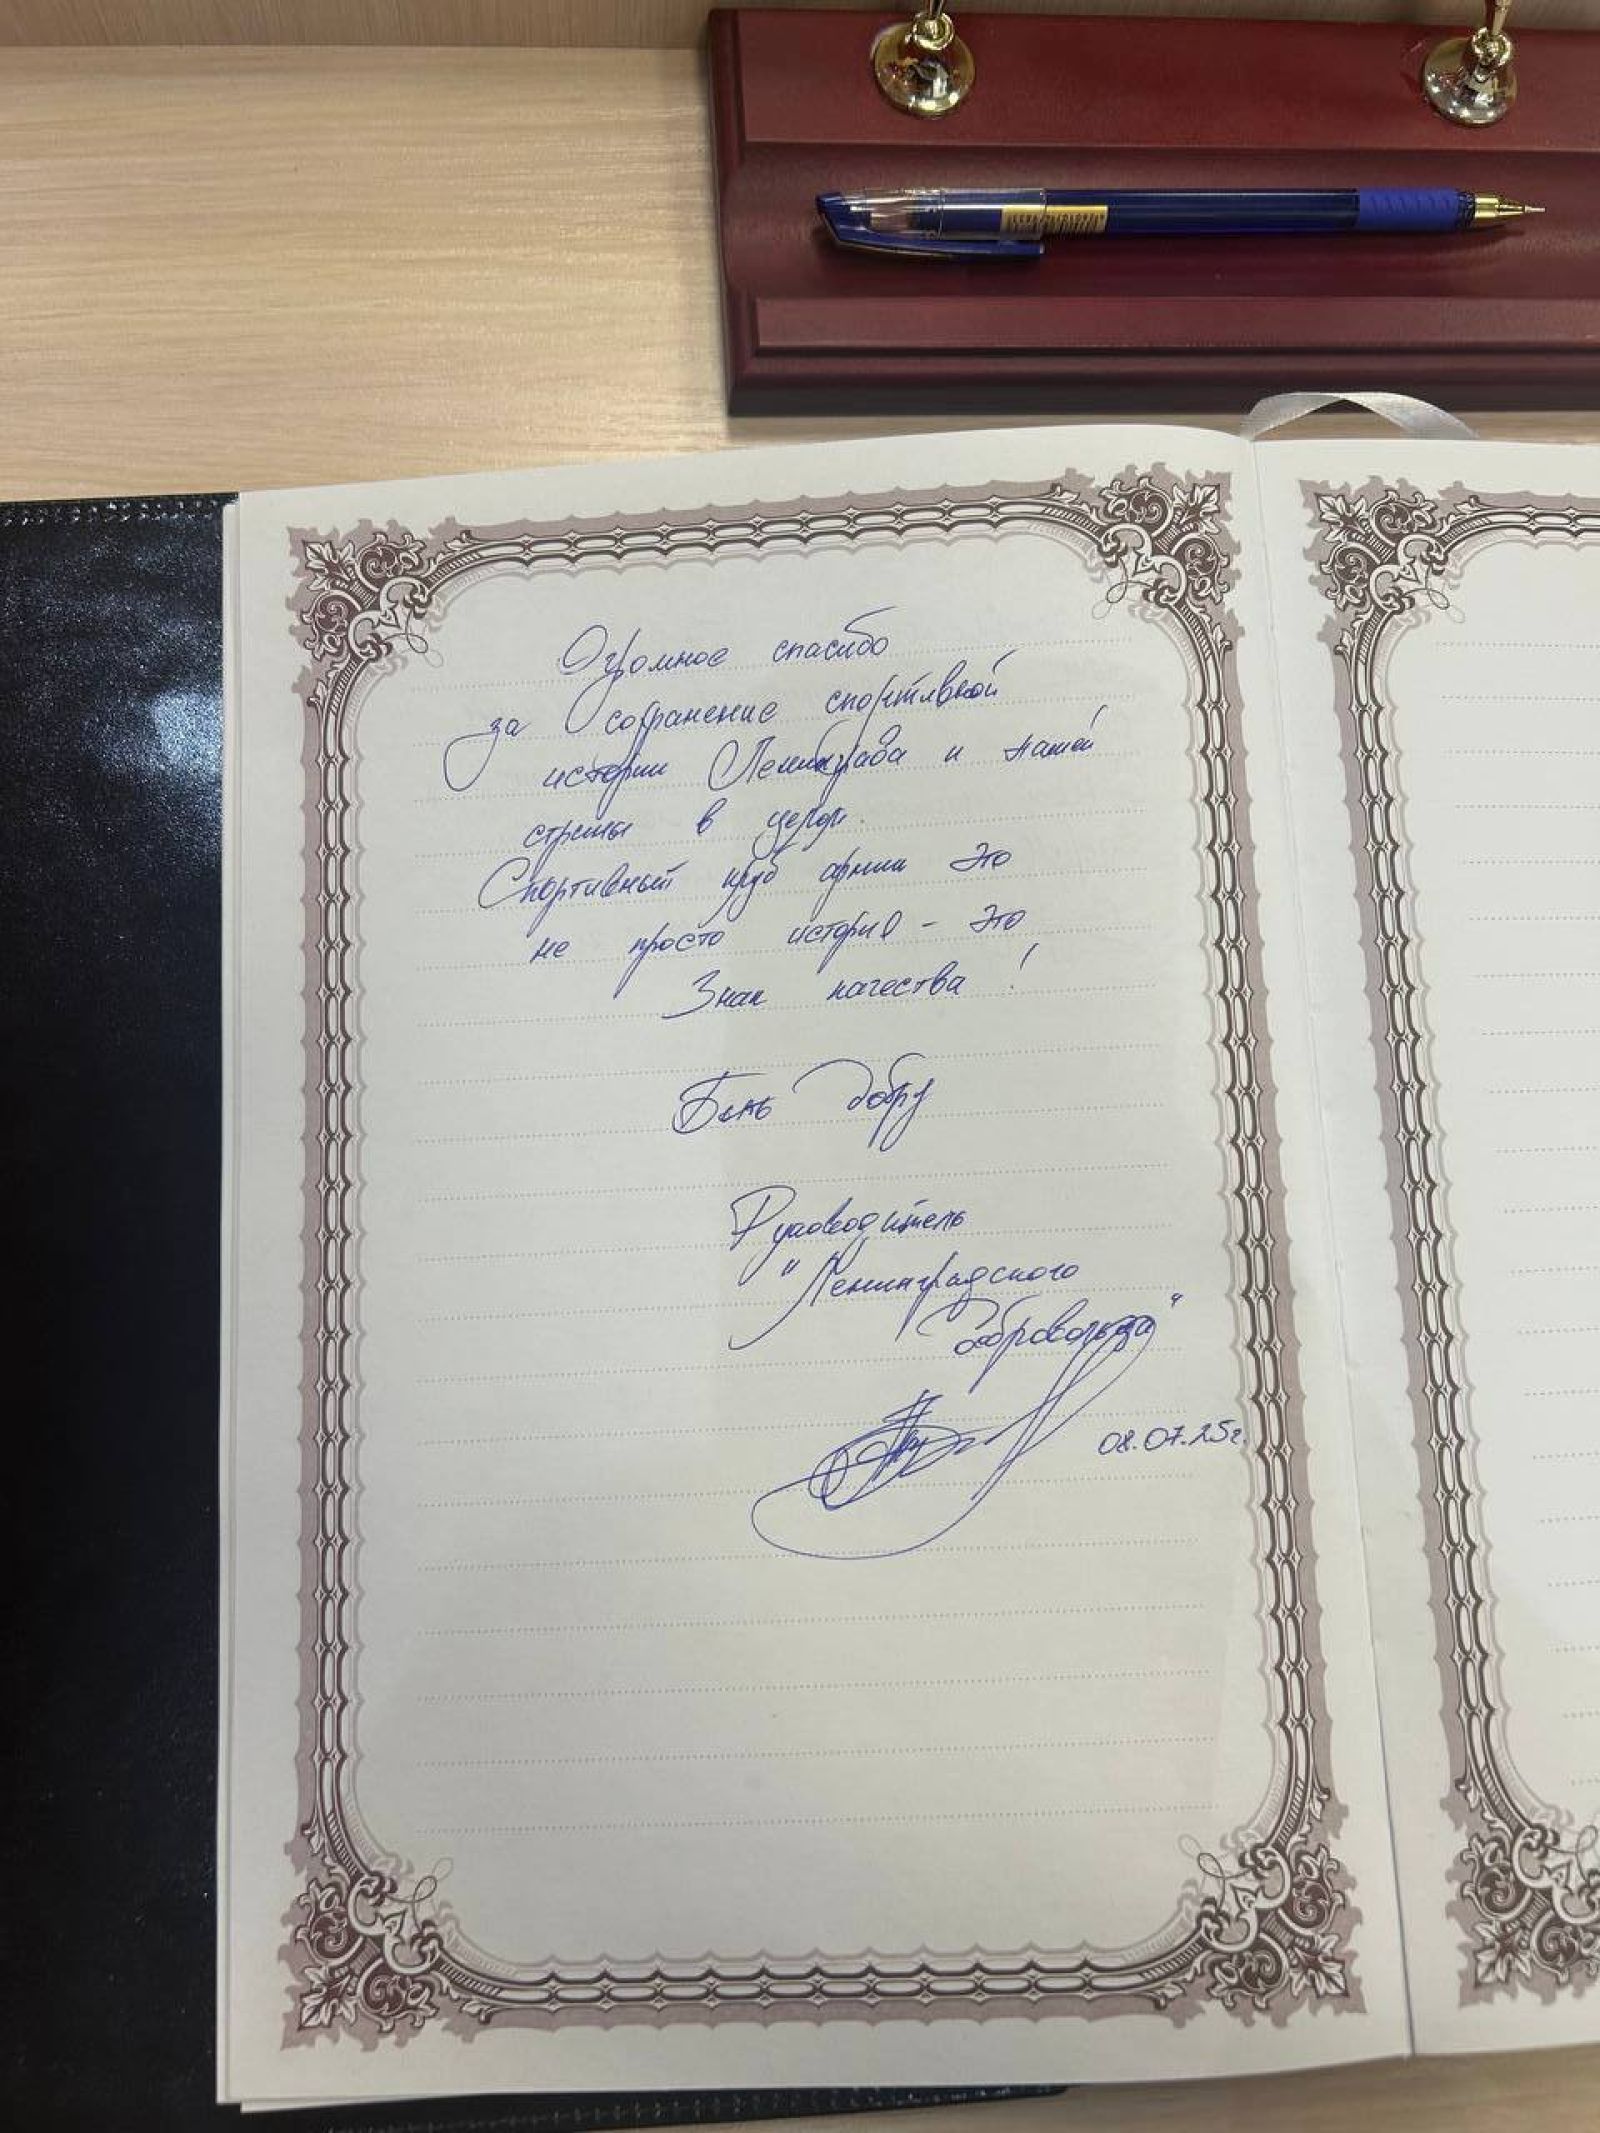 Огромное спасибо
за сохранение спортивной
истории Ленинграда и нашей
страны в целом.
Спортивный клуб армии - это
не просто история - это
Знак качества!
Быть добру
Руководитель
"Ленинградского
добровольца"
08.07.25г.